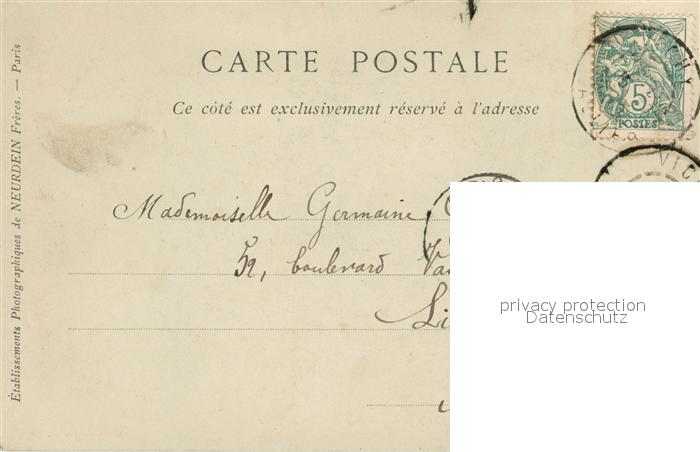 CARTE POSTALE
Ce côté est exclusivement réservé à l'adresse
Établissements Photographiques de NEURDEIN Frères. — Paris
5
POSTES
VIC
Mademoiselle Germaine
52, boulevard
Li
privacy protection
Datenschutz